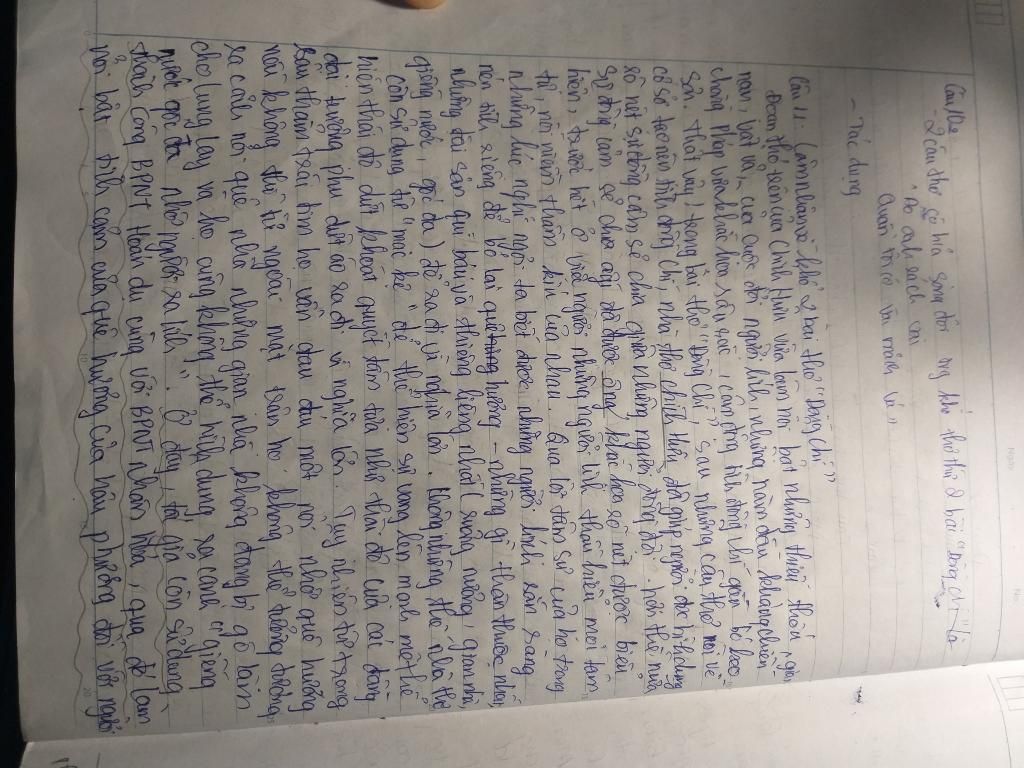 Câu 10:
- 2 câu thơ có hình sóng đôi trong khổ thơ thứ 2 bài "Đồng chí" là
Áo anh rách vai
Quần tôi có vài mảnh vá.
- Tác dụng
Câu 11: Cảm nhận về khổ 2 bài thơ "Đồng chí"?
Đoạn thơ trên của Chính Hữu vừa làm nổi bật những thiếu thốn, gian
nan, vất vả, của cuộc đời người lính, những năm đầu kháng chiến
chống Pháp vừa khắc họa sâu sắc, cảm động tình đồng chí gắn bó keo
sơn. Thật vậy, trong bài thơ "Đồng chí", sau những câu thơ nói về
cơ sở tạo nên tình đồng chí, nhà thơ Chính Hữu đã giúp người đọc hình dung
rõ nét sự đồng cảm sẻ chia giữa những người đồng đội. Hơn thế nữa
sự đồng cảm sẻ chia ấy đã được ông khắc họa rõ nét được biểu
hiện trước hết ở việc người những người lính thấu hiểu mọi tâm
tư, nỗi niềm thầm kín của nhau. Qua lời tâm sự của họ trong
những lúc nghỉ ngơi ta biết được những người lính sẵn sàng
nén tình riêng để bỏ lại quê hương - những gì thân thuộc nhất,
những tài sản quý báu và thiêng liêng nhất (ruộng nương, gian nhà,
giếng nước, gốc đa) để ra đi vì nghĩa lớn. Không những thế nhà thơ
còn sử dụng từ "mặc kệ" để thể hiện sự vươn lên mạnh mẽ thể
hiện thái độ dứt khoát quyết tâm địa như thái độ của các đấng
đại trượng phu dứt áo ra đi vì nghĩa lớn. Tuy nhiên từ trong
sâu thẳm trái tim họ vẫn đau đáu một nỗi nhớ quê hương
nếu không thì từ ngoài mặt trận họ không thể tưởng tượng
ra cảnh nơi quê nhà những gian nhà không đang bị gió làm
cho lung lay và họ cũng không thể hình dung ra cảnh "giếng
nước gốc đa nhớ người ra lính". Ở đây, tác giả còn sử dụng
thành công BPNT Hoán dụ cùng với BPNT nhân hóa, qua đó làm
nổi bật tình cảm của quê hương của hậu phương đối với người